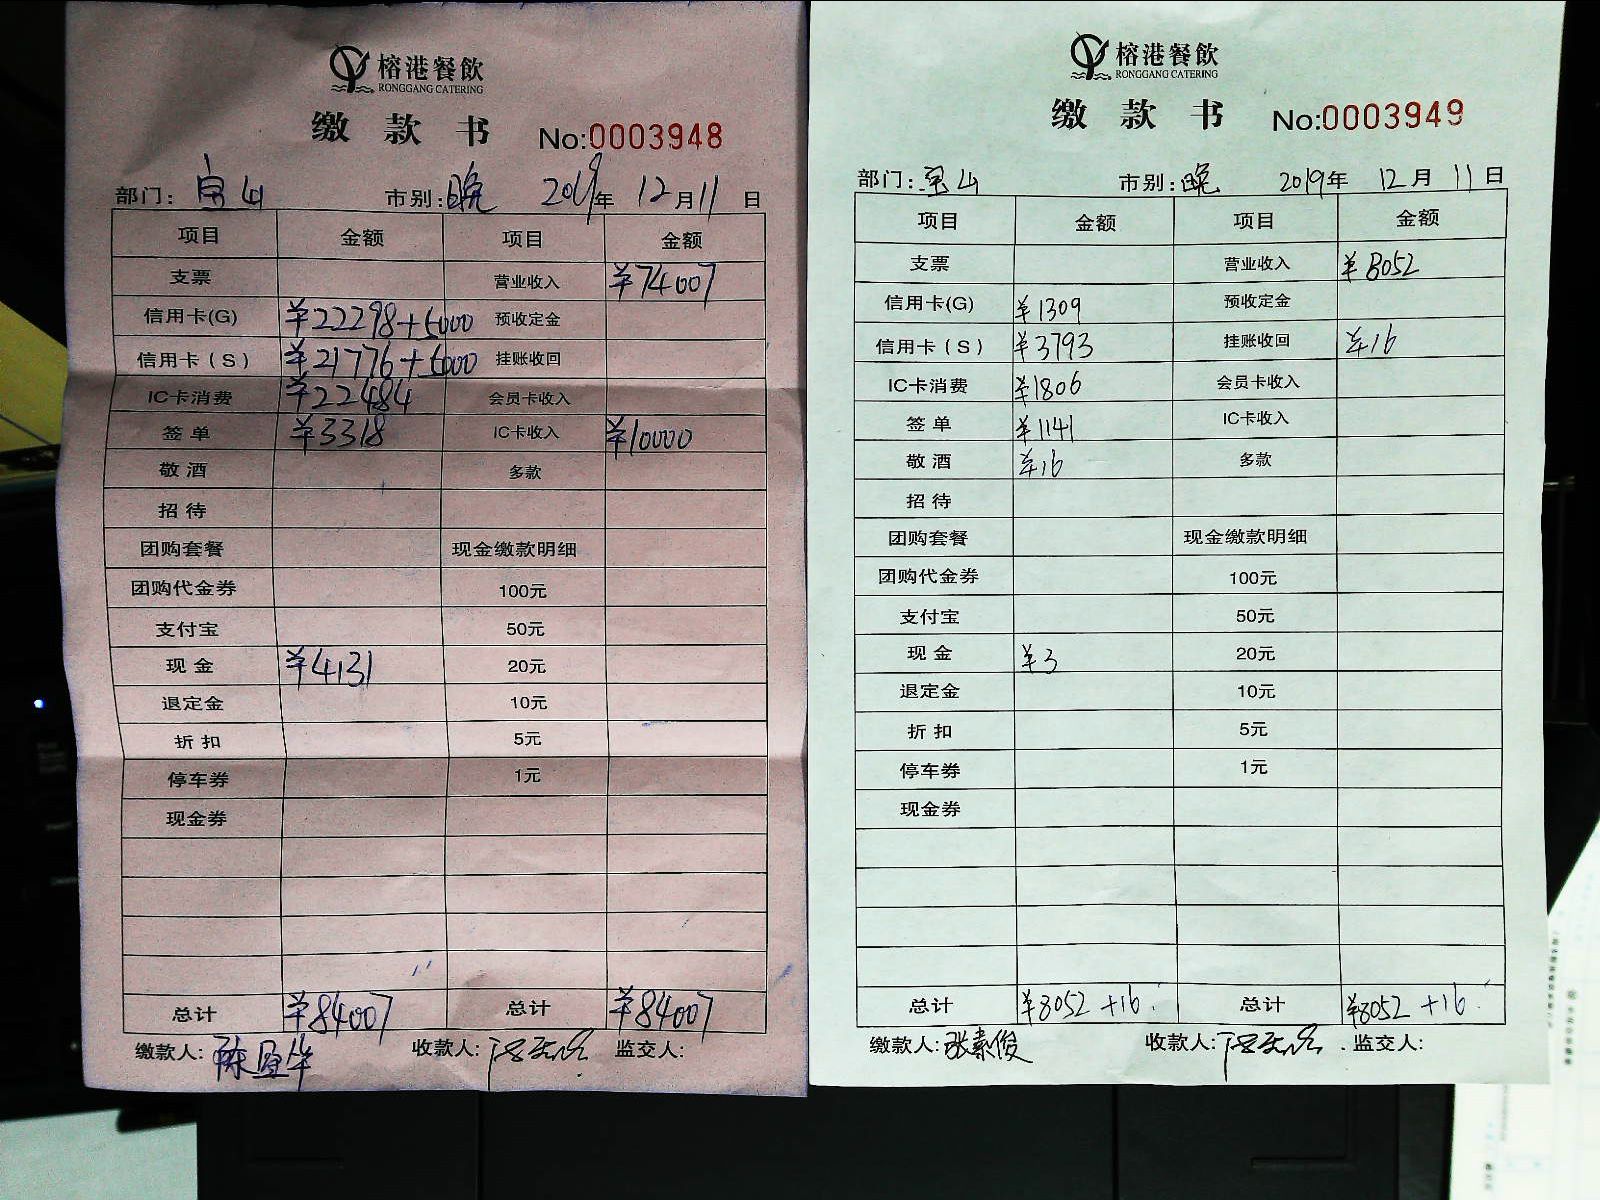 榕港餐飲
RONGGANG CATERING
缴款书 No:0003948
部门: 宝山 市别: 晚 2019年 12月11日
项目 金额 项目 金额
支票 营业收入 ¥74007
信用卡(G) ¥22298+5000 预收定金
信用卡(S) ¥21776+5000 挂账收回
IC卡消费 ¥22484 会员卡收入
签单 ¥3318 IC卡收入 ¥10000
敬酒 多款
招待
团购套餐 现金缴款明细
团购代金券 100元
支付宝 50元
现金 ¥4131 20元
退定金 10元
折扣 5元
停车券 1元
现金券
总计 ¥84007 总计 ¥84007
缴款人: 收款人: 监交人:
榕港餐飲
RONGGANG CATERING
缴款书 No:0003949
部门: 宝山 市别: 晚 2019年 12月11日
项目 金额 项目 金额
支票 营业收入 ¥8052
信用卡(G) ¥1309 预收定金
信用卡(S) ¥3793 挂账收回 ¥16
IC卡消费 ¥1806 会员卡收入
签单 ¥1141 IC卡收入
敬酒 ¥16 多款
招待
团购套餐 现金缴款明细
团购代金券 100元
支付宝 50元
现金 ¥3 20元
退定金 10元
折扣 5元
停车券 1元
现金券
总计 ¥8052+16 总计 ¥8052+16
缴款人: 张素俊 收款人: 监交人: